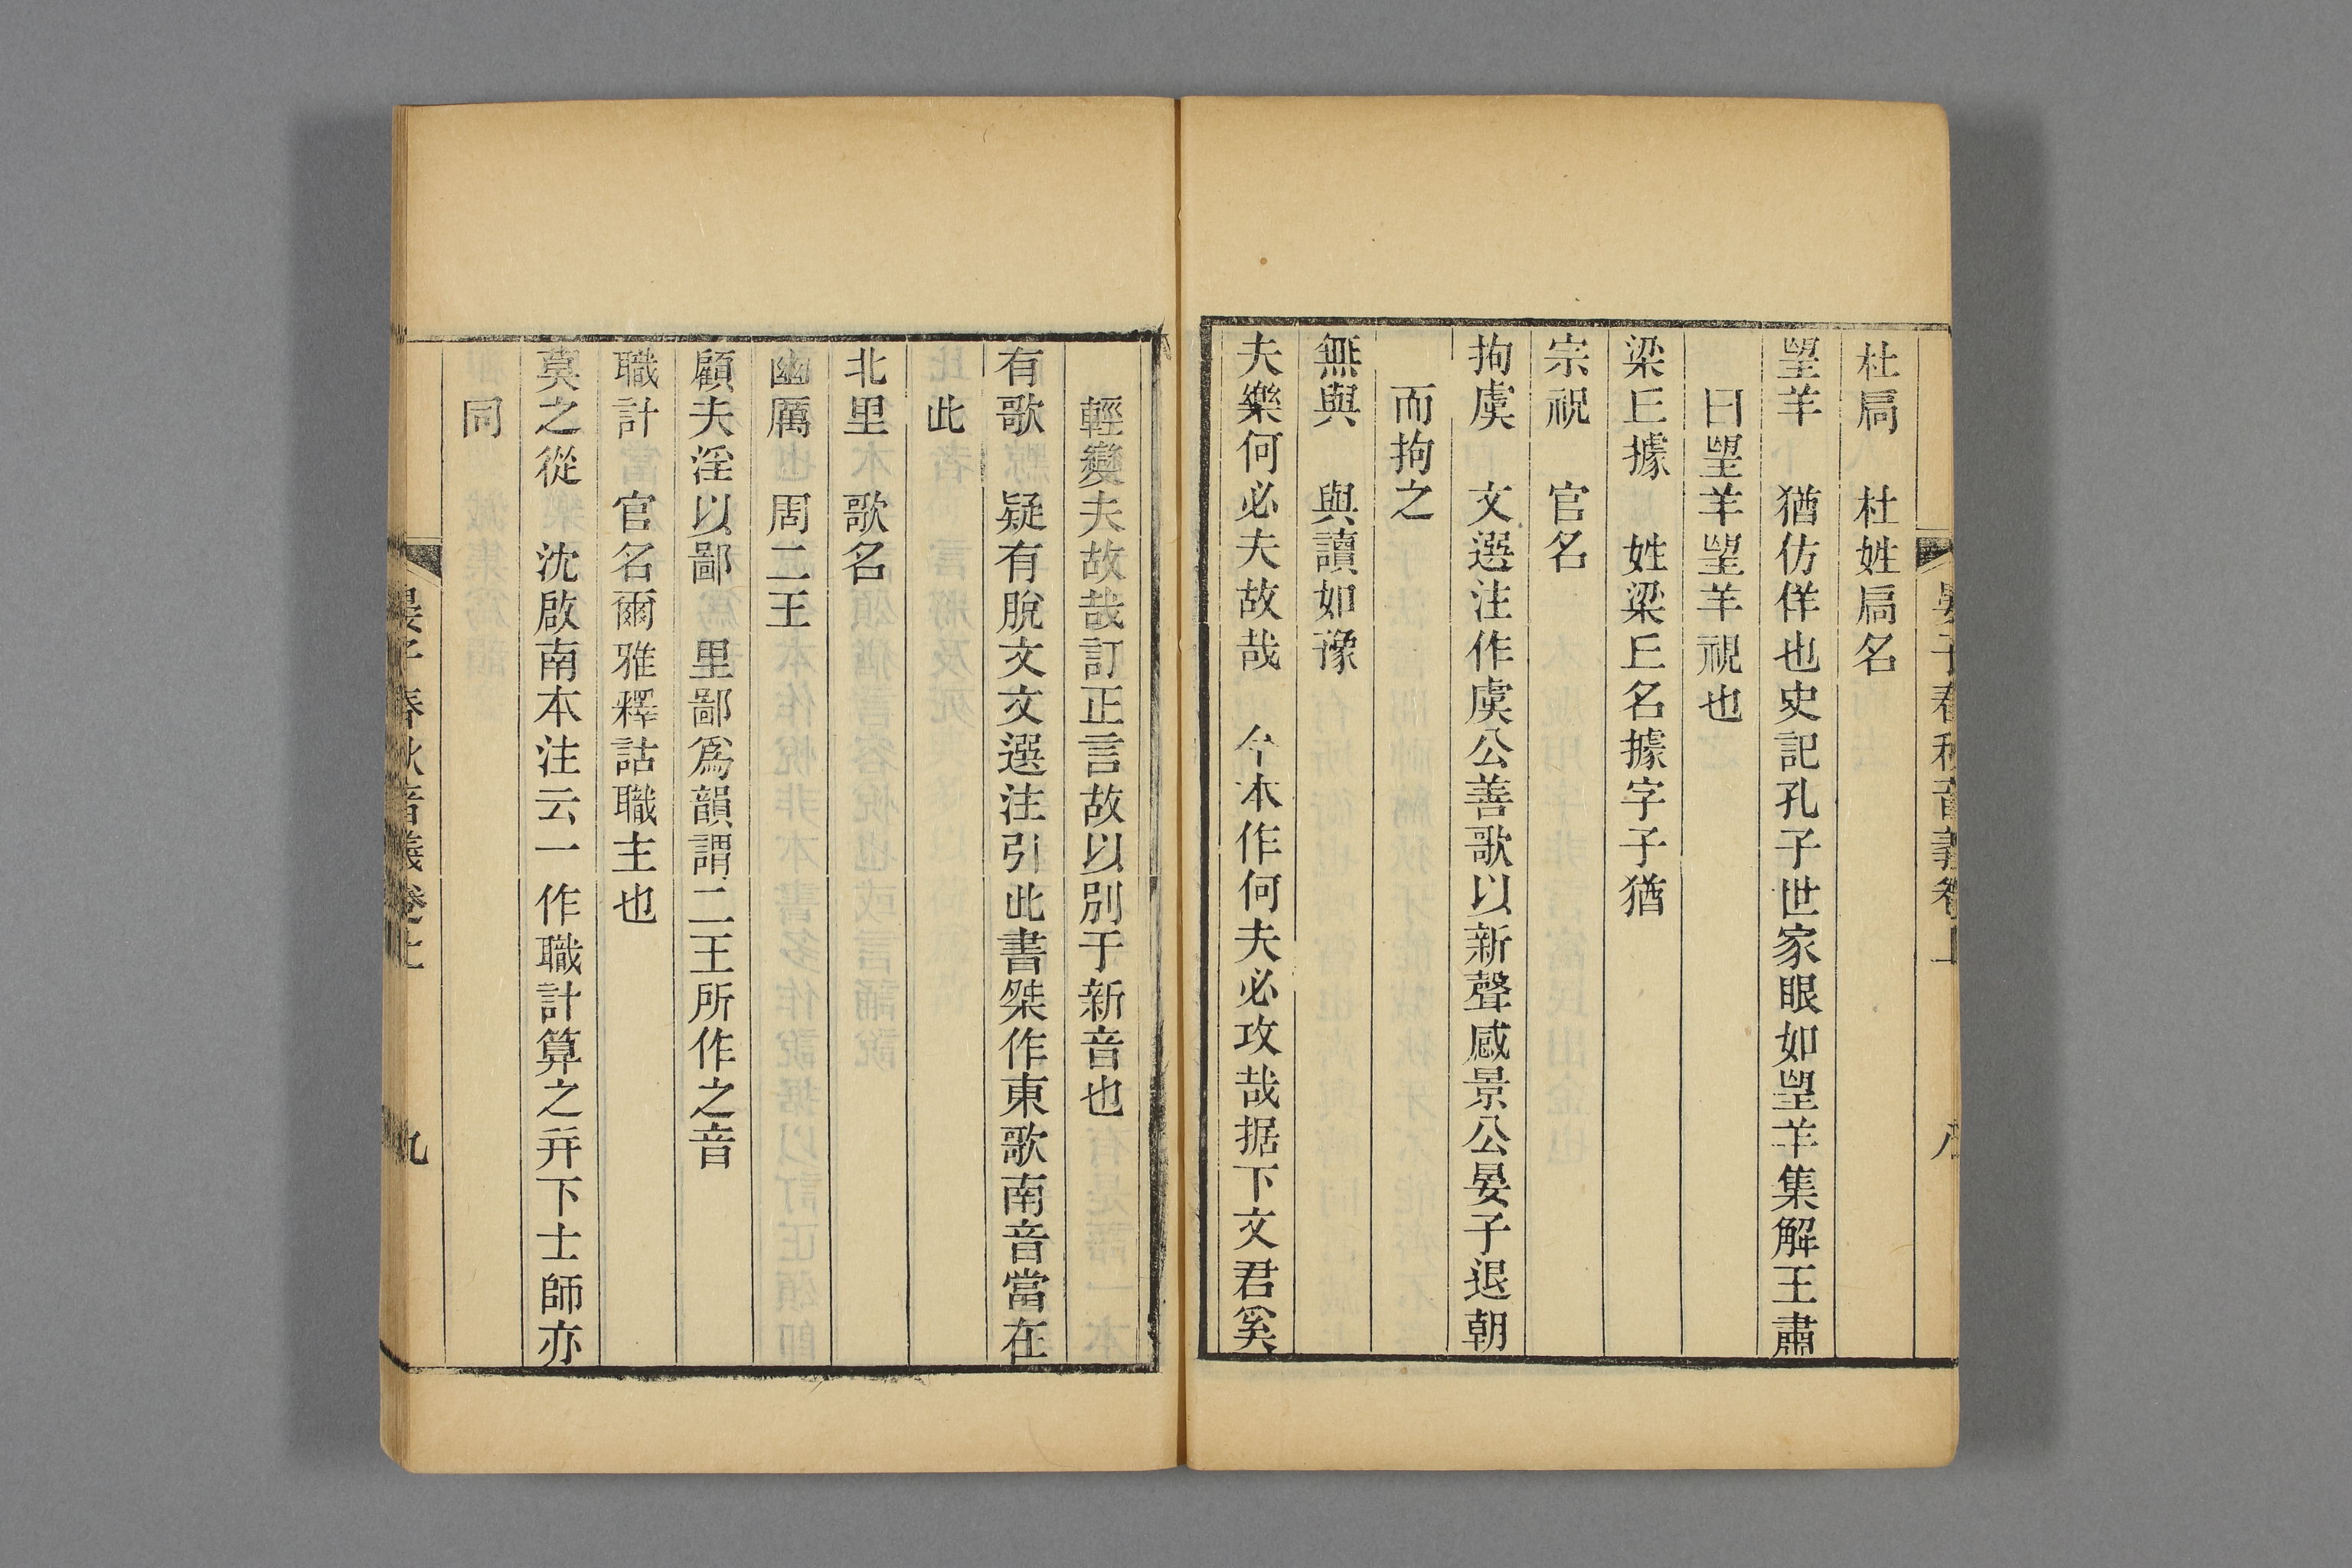 杜扃　杜姓扃名
望羊　猶仿佯也史記孔子世家眼如望羊集解王肅
曰望羊望羊視也
梁丘據　姓梁丘名據字子猶
宗祝　官名
拘虞　文選注作虞公善歌以新聲感景公晏子退朝
而拘之
無與　與讀如豫
夫樂何必夫故哉　今本作何夫必攻哉据下文君奚
晏子春秋音義卷上　八
輕變夫故哉訂正言故以別于新音也
有歌　疑有脫文文選注引此書桀作東歌南音當在
此
北里　歌名
幽厲　周二王
顧夫淫以鄙　里鄙爲韻謂二王所作之音
職計　官名爾雅釋詁職主也
莫之從　沈啟南本注云一作職計算之并下士師亦
同
晏子春秋音義卷上　九